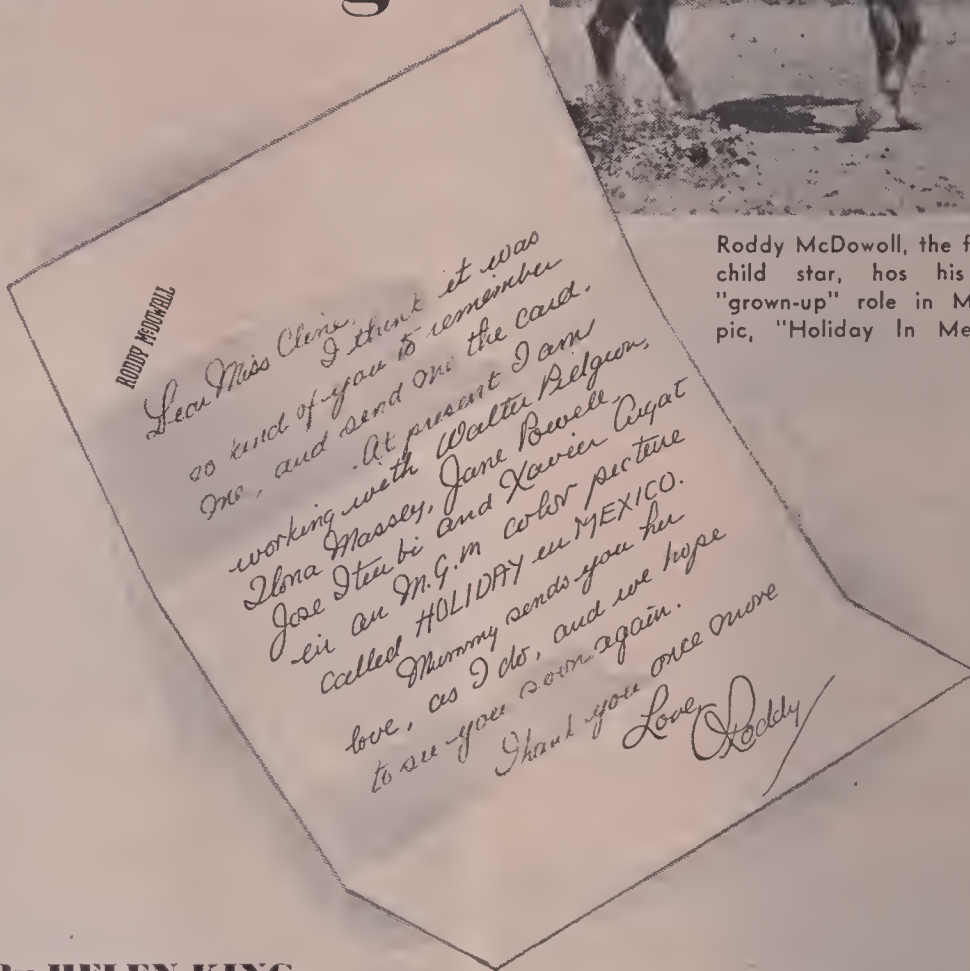 Roddy McDowoll, the f
child star, hos his
"grown-up" role in M
pic, "Holiday In Me
RODDY McDOWALL
Dear Miss Cline,
I think it was
so kind of you to remember
me, and send me the card.
At present I am
working with Walter Pidgeon,
Ilona Massey, Jane Powell,
Jose Iturbi and Xavier Cugat
in an M.G.M color picture
called HOLIDAY in MEXICO.
Mummy sends you her
love, as I do, and we hope
to see you soon again.
Thank you once more
Love,
Roddy
By HELEN KING